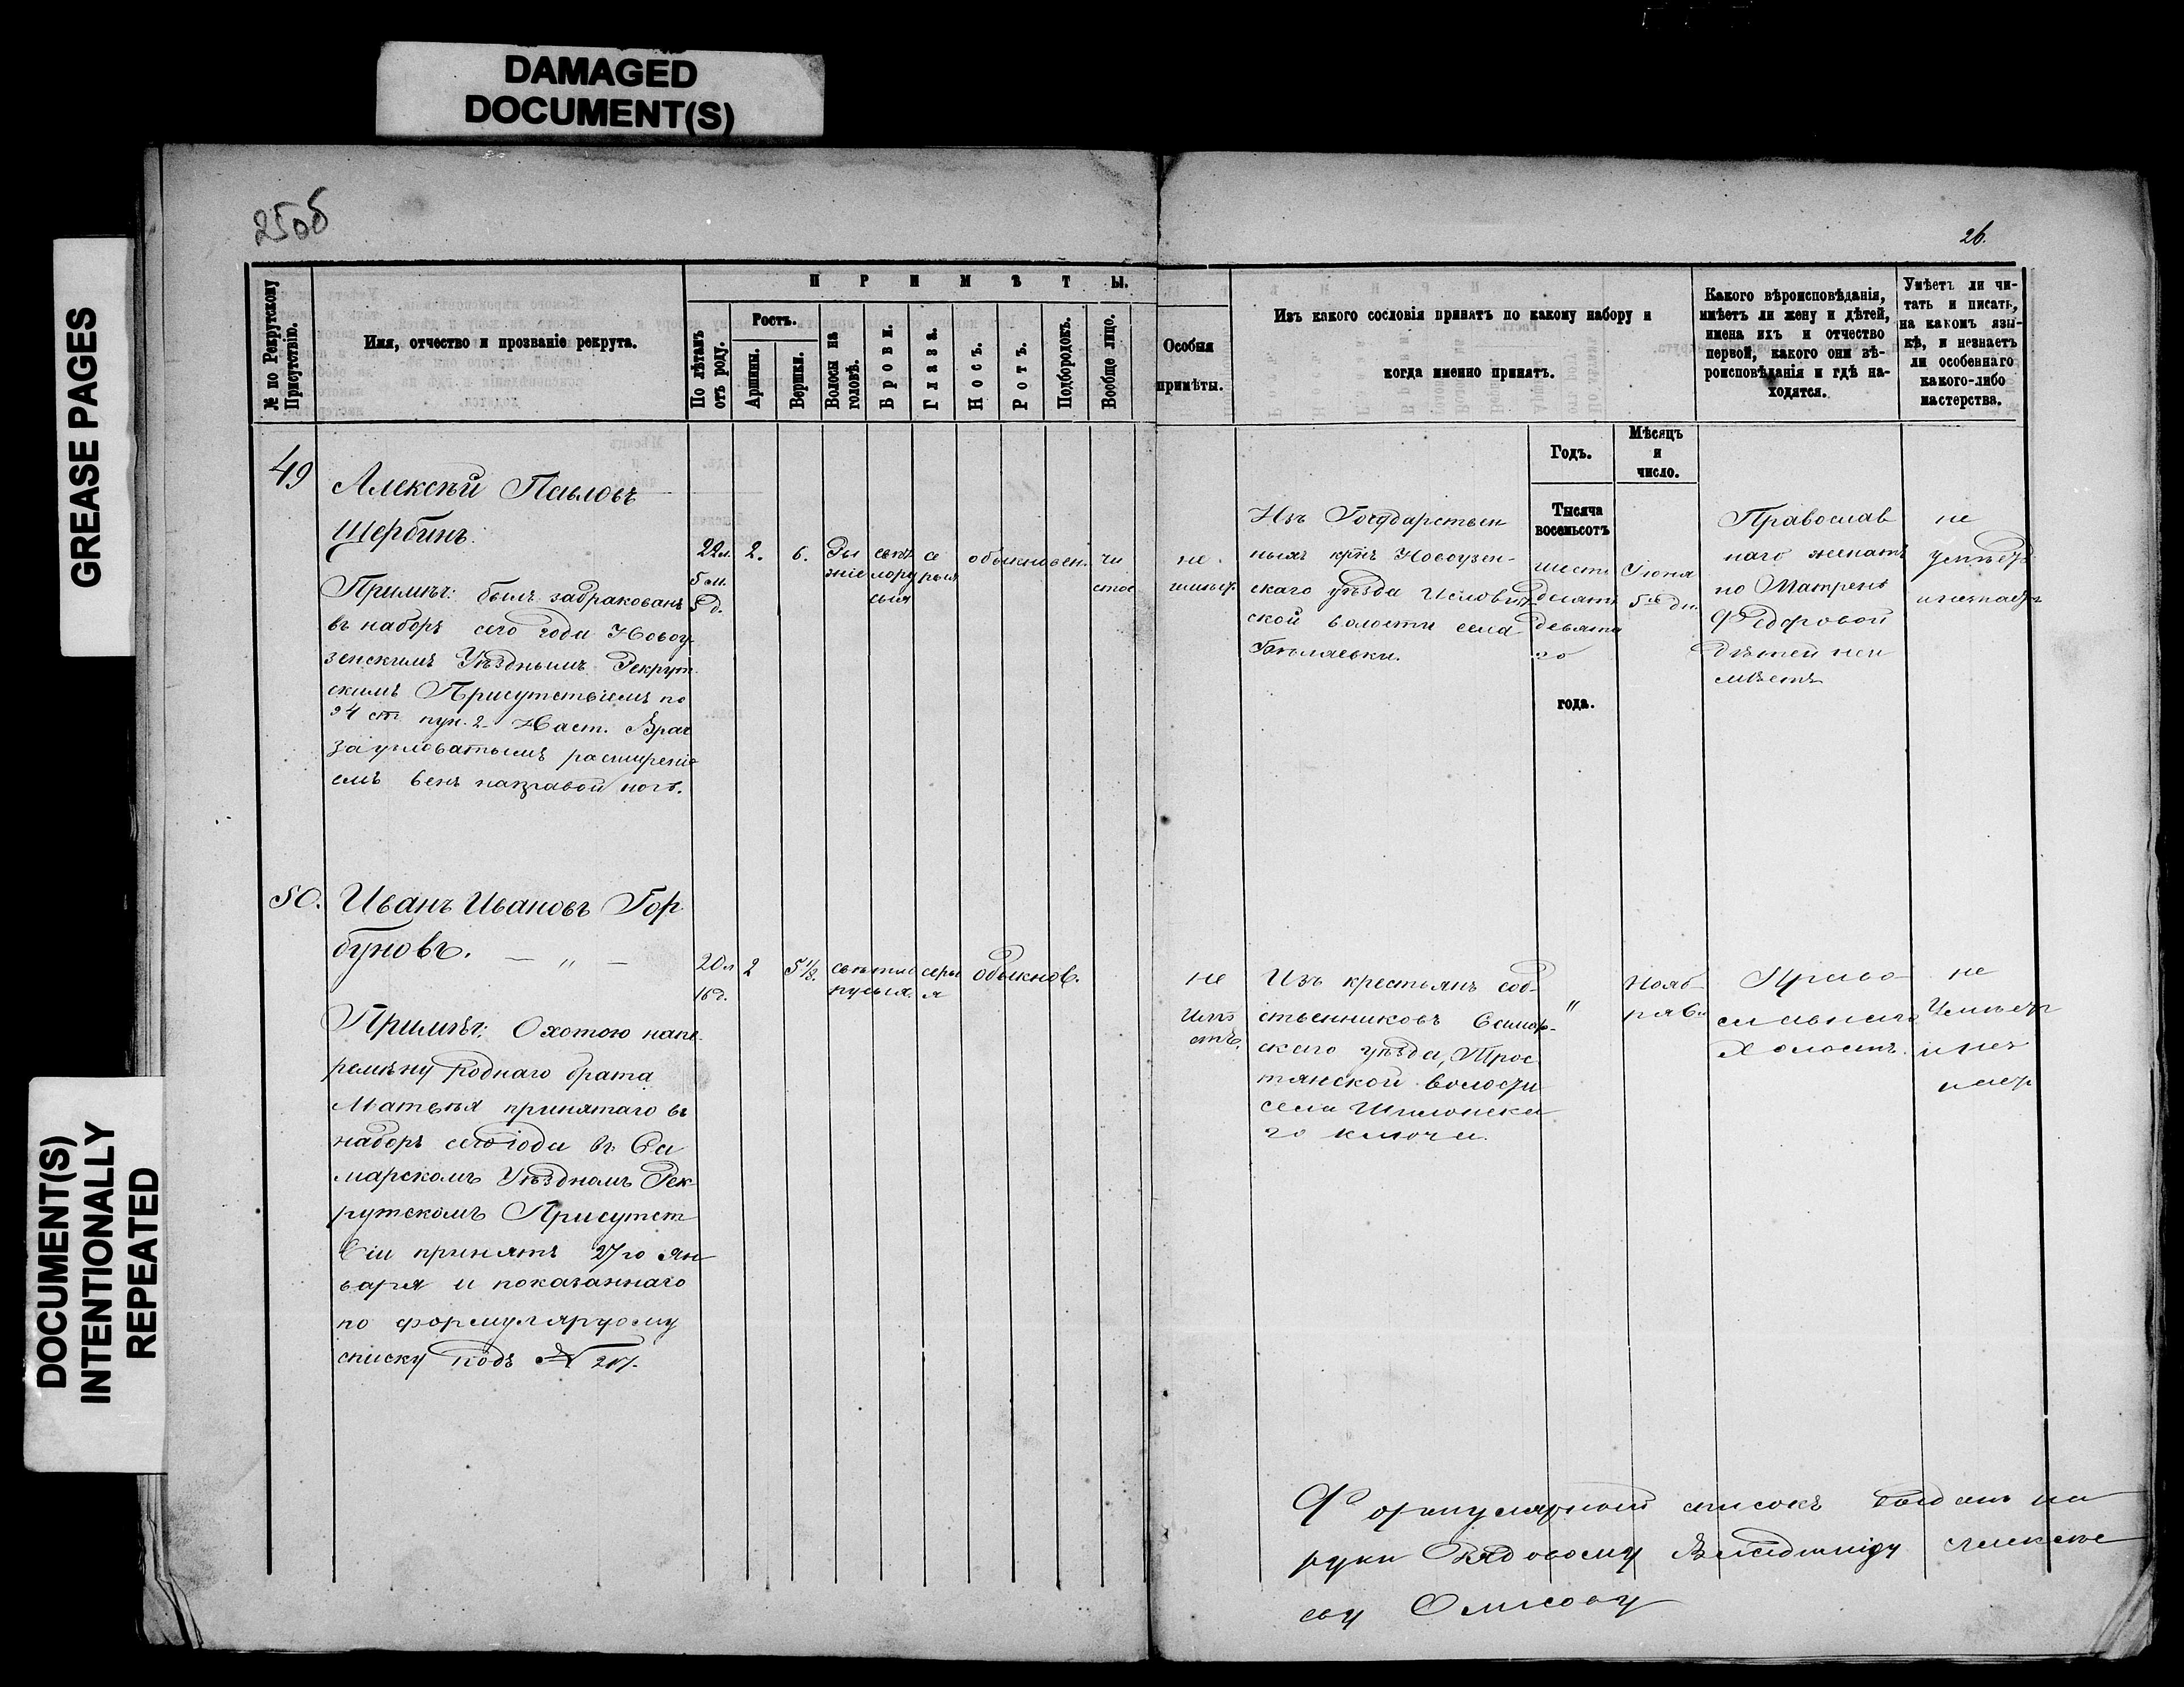 DAMAGED
DOCUMENT(S)
GREASE PAGES
DOCUMENT(S)
INTENTIONALLY
REPEATED
25об
26.
№ по Рекрутскому
Присутствію.
Имя, отчество и прозваніе рекрута.
ПРИМѢТЫ.
По лѣтамъ
отъ роду.
Ростъ.
Аршины.
Вершки.
Волосы на
головѣ.
Брови.
Глаза.
Носъ.
Ротъ.
Подбородокъ.
Вообще лицо.
Особыя
примѣты.
Изъ какого сословія принятъ по какому набору и
когда именно принятъ.
Какого вѣроисповѣданія,
имѣетъ ли жену и дѣтей,
имена ихъ и отчество
первой, какого они вѣ-
роисповѣданія и гдѣ на-
ходятся.
Умѣетъ ли чи-
тать и писать,
на какомъ язы-
кѣ, и незнаетъ
ли особеннаго
какого-либо
мастерства.
Годъ.
Мѣсяцъ
и
число.
Тысяча
восемьсотъ
года.
49
Алексѣй Павловъ
Щербинъ.
Примѣч: былъ забракованъ
въ наборъ сего года Новоу
зенскимъ Уѣзднымъ Рекрут
скимъ Присутствіемъ по
94 ст. пун. 2. Наст. Врач
за узловатымъ расширені
емъ венъ направой ногѣ.
22л.
5 м.
5 д.
2.
6.
Ры
жіе
свѣт
лору
сыя
се
рыя
обыкновен.
чи
стое
не
имѣет.
Изъ Государствен
ныхъ крнъ Новоузен-
скаго уѣзда
ской волости села
Бѣляевки.
шесть
десятъ
девята
го
Іюня
5го дн.
Православ
наго женатъ
на Матренѣ
Федоровой
Дѣтей неи
мѣетъ
не
умѣетъ
инезнаетъ
50.
Иванъ Ивановъ Гор
буновъ. — „ —
Примѣч: Охотою напе
ремѣну роднаго брата
Матвѣя принятаго въ
наборъ сего года въ Са
марскомъ Уѣздномъ Рек
рутскомъ Присутст
віи принятъ 27го Ян
варя и показаннаго
по формулярному
списку подъ №
20л
16д.
2
5 1/8.
свѣтло
русыя.
серы
я
обыкнов.
не
имѣ
етъ.
Изъ крестьянъ соб-
ственниковъ Самар-
скаго уѣзда, Трос
тянской волости
села Шиланска
го ключа.
"
Нояб-
ря 6
Право
славнаго
Холостъ.
не
Умѣетъ
инез
наетъ
Формулярный списокъ выданъ на
руки Рядовому Алексѣе
ву